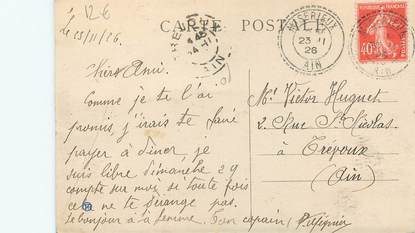 12€
le 23/11/26
CARTE POSTALE
MISERIEUX
23 - 11
26
AIN
40c
Chers Ami.
Comme je te l'ai
promis, j'irais te faire
payer à diner, je
suis libre dimanche 29
compte sur moi si toute fois
cela ne te dérange pas.
le bonjour à ta femme. Ton copain
Mr Victor Huguet
2. Rue St Nicolas
à Trévoux
(Ain)